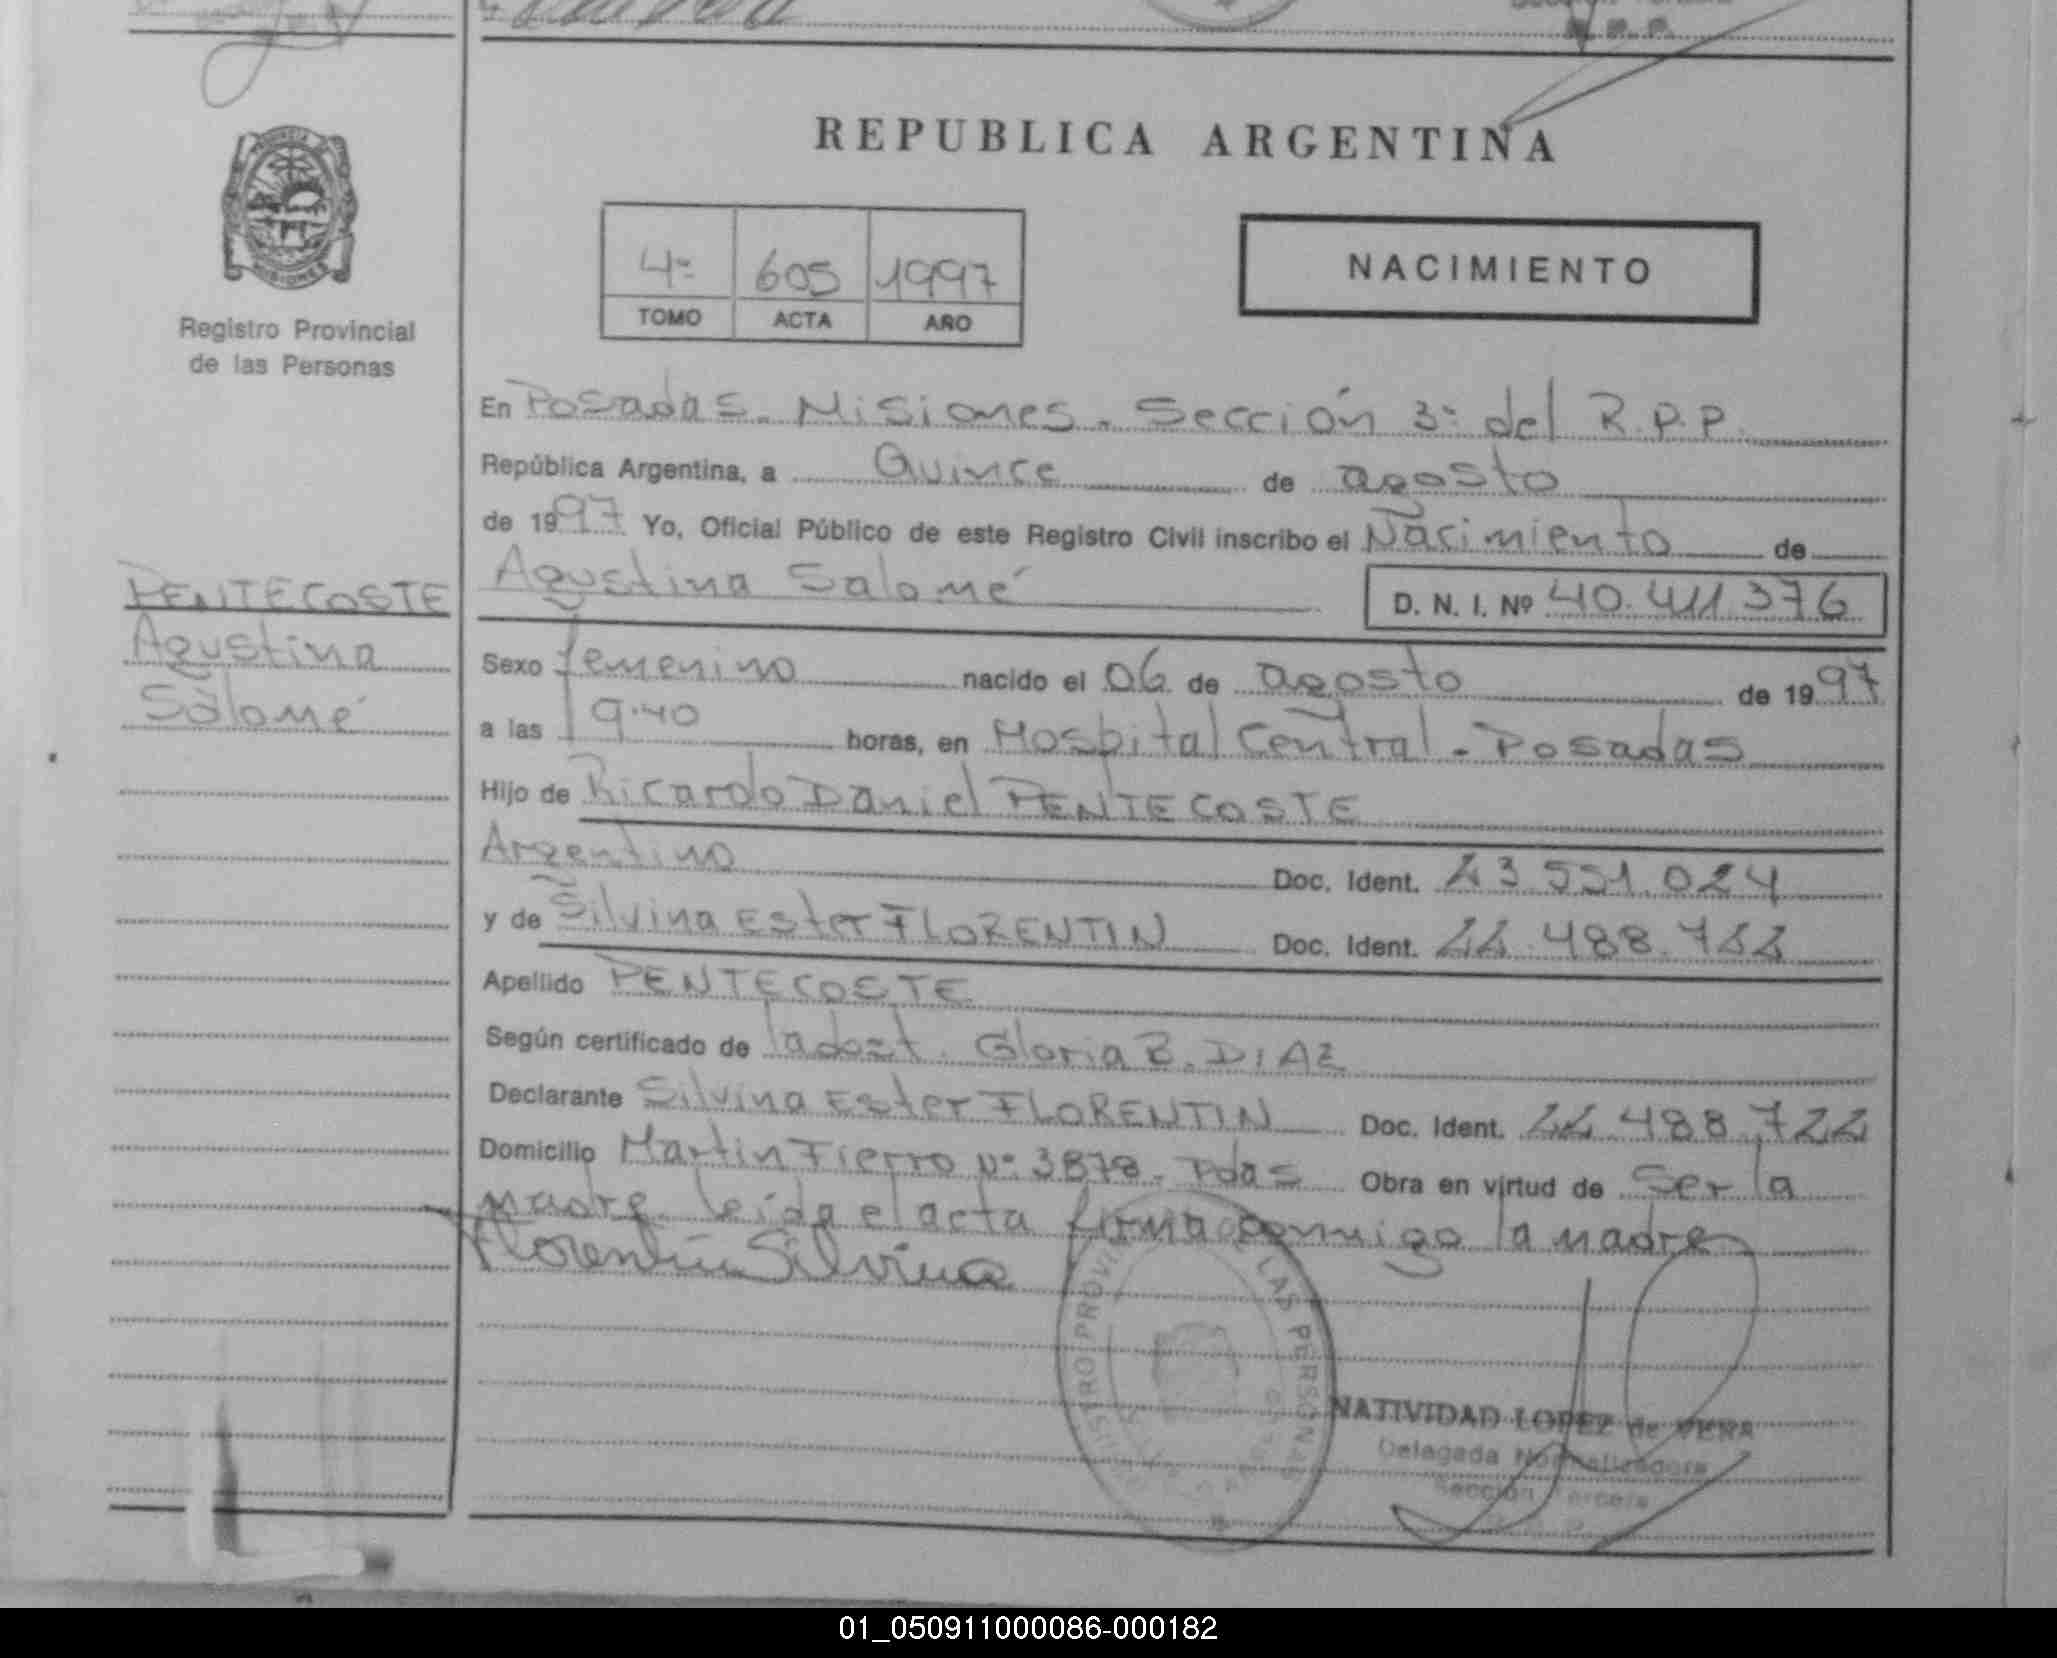 REPUBLICA ARGENTINA
4º 605 1997
TOMO ACTA AÑO
NACIMIENTO
Registro Provincial
de las Personas
En Posadas. Misiones. Sección 3ª del R.P.P.
República Argentina, a Quince de agosto
de 1997 Yo, Oficial Público de este Registro Civil inscribo el Nacimiento de
Agustina Salomé D. N. I. Nº 40.411.376
PENTECOSTE
Agustina
Salomé
Sexo femenino nacido el 06 de agosto de 1997
a las 9.40 horas, en Hospital Central - Posadas
Hijo de Ricardo Daniel PENTECOSTE
Argentino Doc. Ident. 23.551.024
y de Silvina Ester FLORENTIN Doc. Ident. 22.488.722
Apellido PENTECOSTE
Según certificado de la dost. Gloria B. DIAZ
Declarante Silvina Ester FLORENTIN Doc. Ident. 22.488.722
Domicilio Martin Fierro Nº 3878 - Pdas Obra en virtud de Ser la
madre. leída el acta firma conmigo la madre
Florentin Silvina
LAS PERSONAS
NATIVIDAD LOPEZ de VERA
Delegada Normalizadora
Sección Tercera
01_050911000086-000182